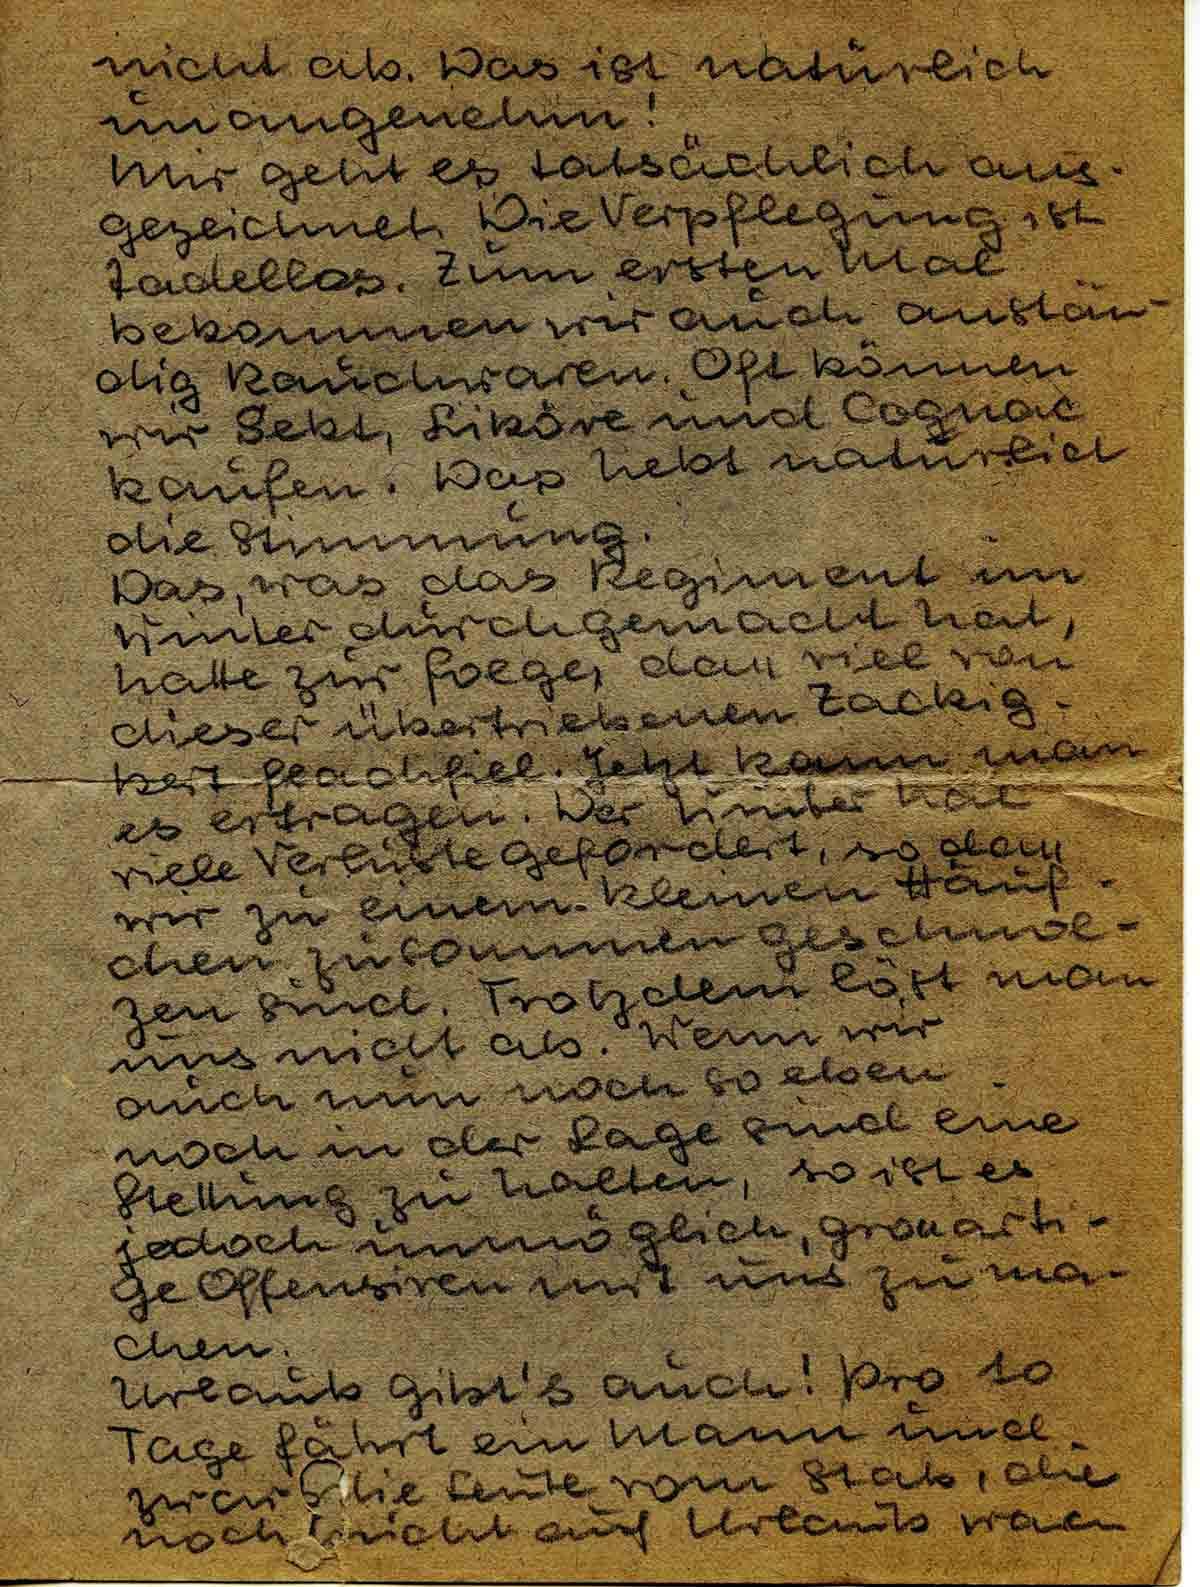 nicht ab. Das ist natürlich
unangenehm!
Mir geht es tatsächlich aus-
gezeichnet. Die Verpflegung ist
tadellos. Zum ersten Mal
bekommen wir auch anstän-
dig Rauchwaren. Oft können
wir Sekt, Liköre und Cognac
kaufen. Das hebt natürlich
die Stimmung.
Das, was das Regiment im
Winter durchgemacht hat,
hatte zur Folge, dass viel von
dieser übertriebenen Zackig-
keit flachfiel. Jetzt kann man
es ertragen. Der Winter hat
viele Verluste gefordert, so dass
wir zu einem kleinen Häuf-
chen zusammengeschmol-
zen sind. Trotzdem löst man
uns nicht ab. Wenn wir
auch nun noch so eben
noch in der Lage sind eine
Stellung zu halten, so ist es
jedoch unmöglich, grossarti-
ge Offensiven mit uns zu ma-
chen.
Urlaub gibt's auch! Pro 10
Tage fährt ein Mann und
zwar die Leute vom Stab, die
noch nicht auf Urlaub waren